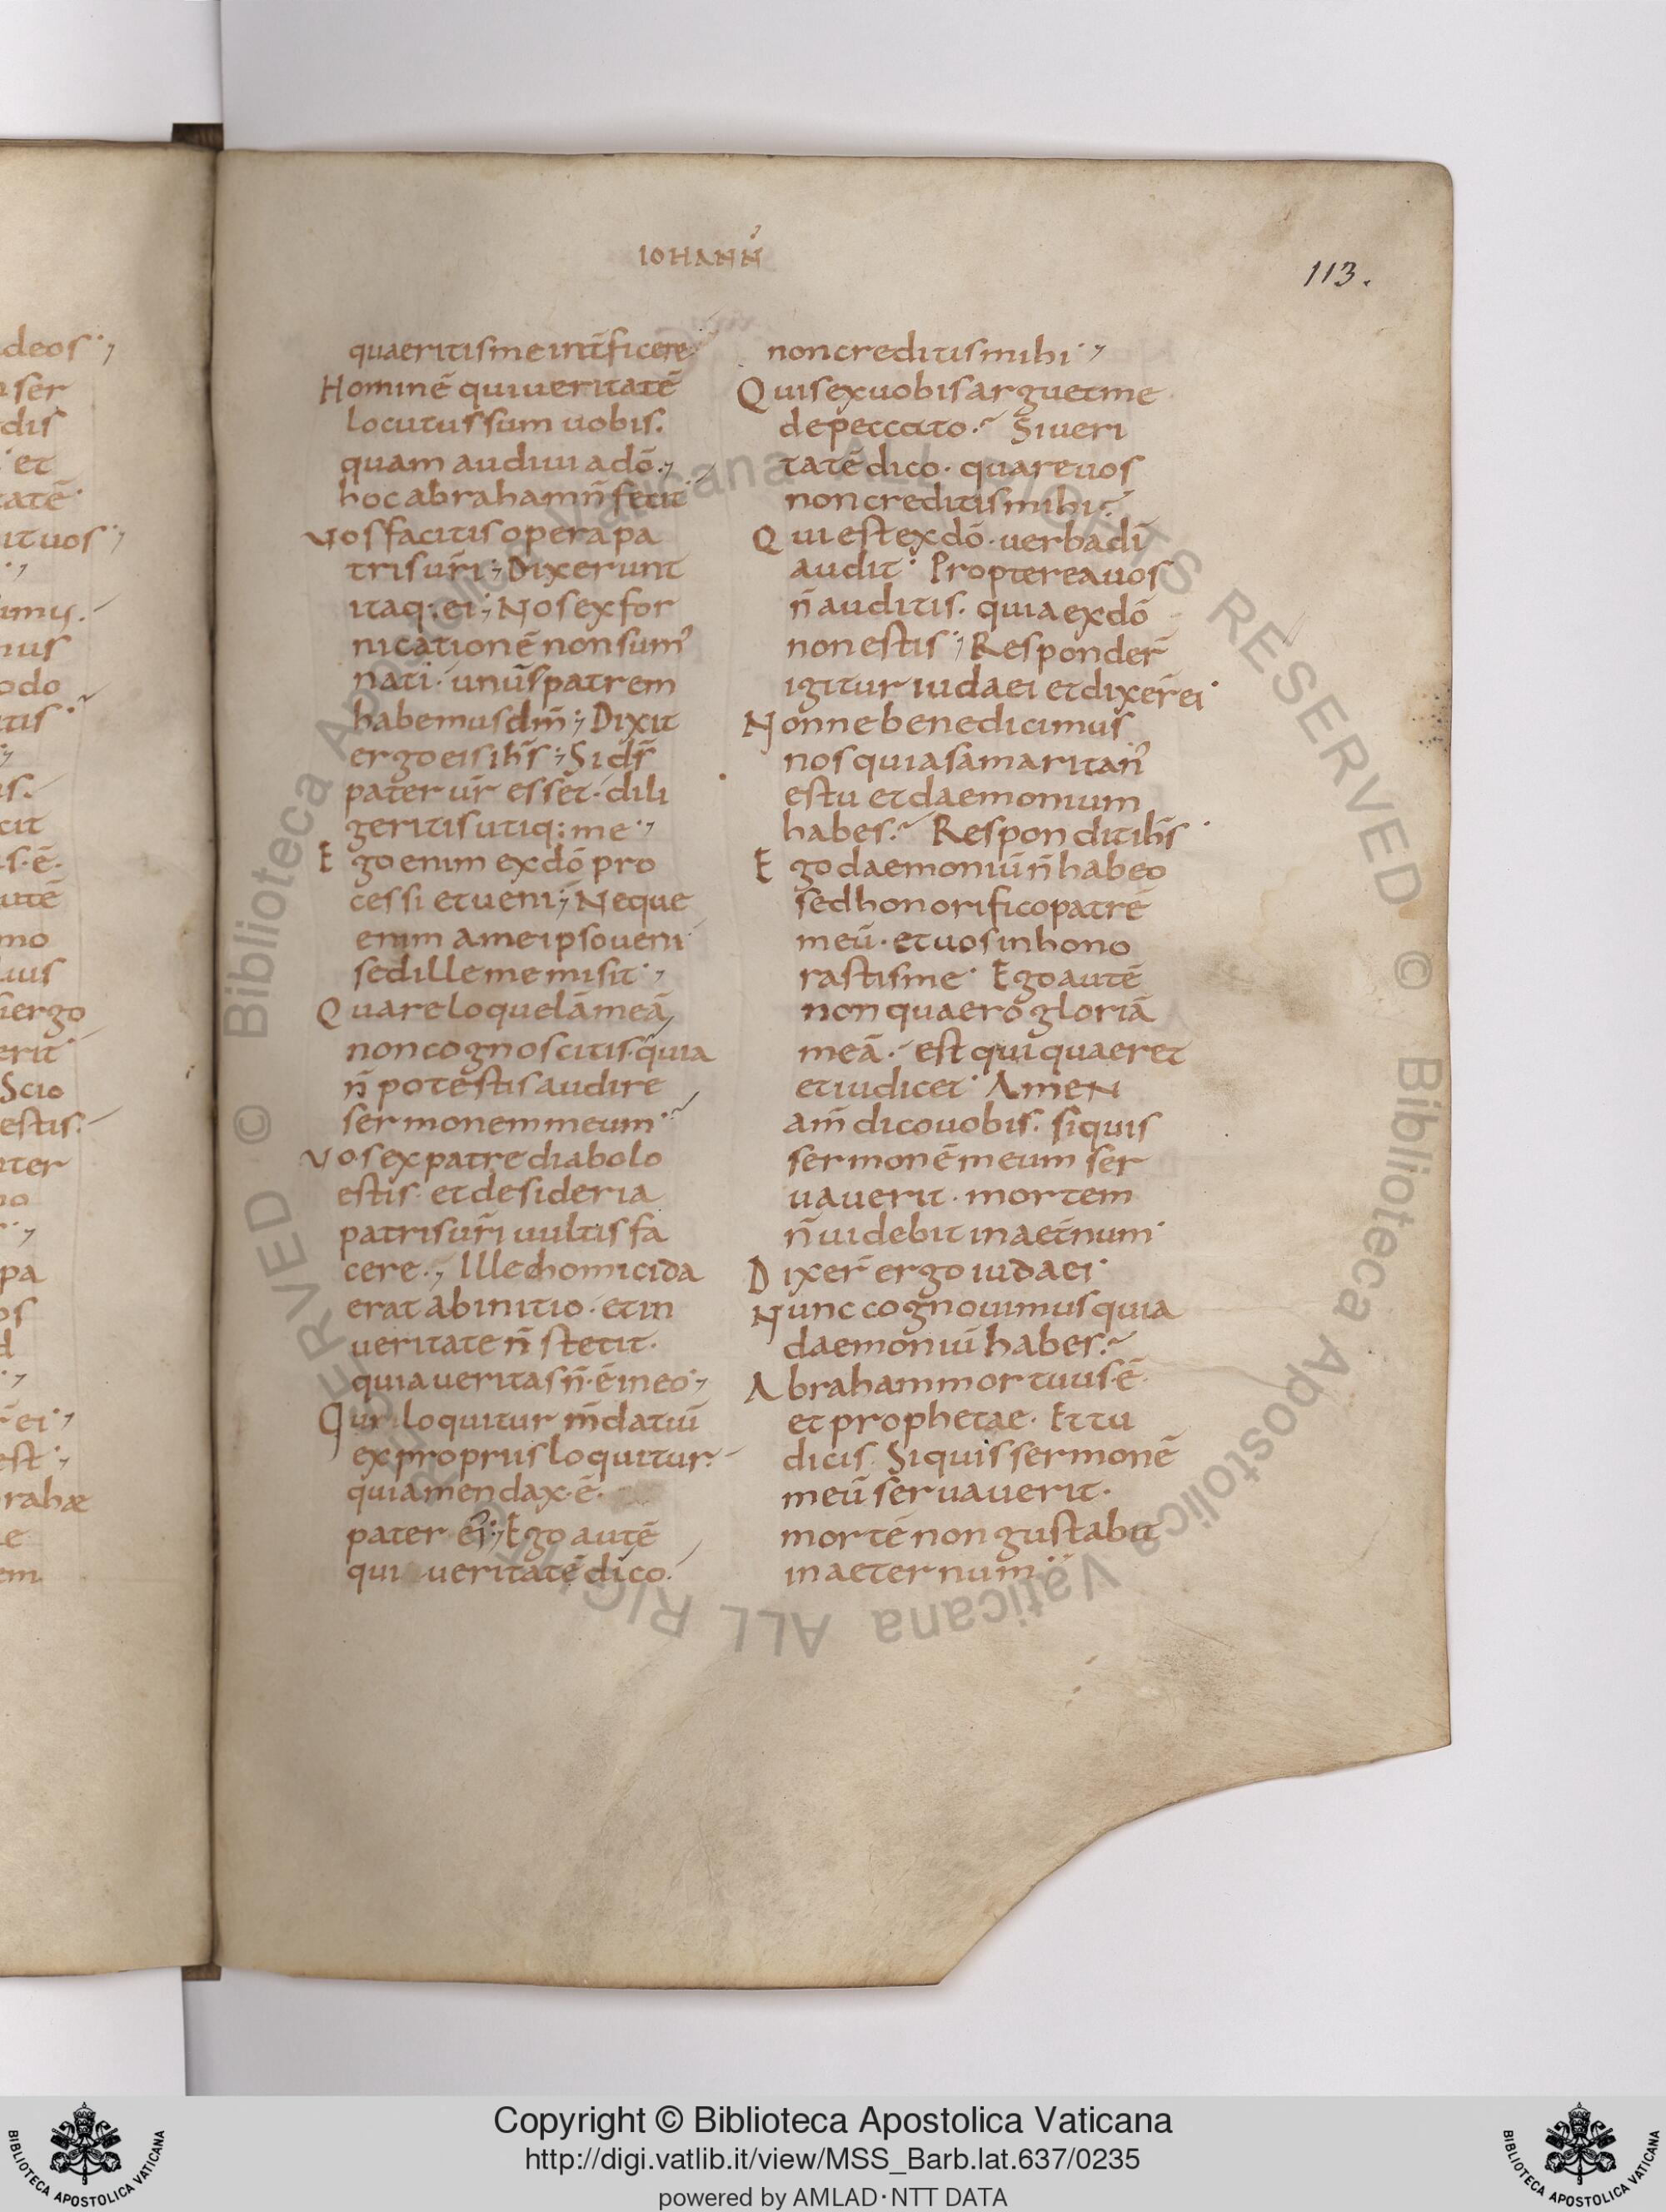 IOHANN̄
113.
deos
ser
dis
et
tatē
it uos
imus
nus
odo
tis
is
cit
s ē
utē
mo
ius
iergo
erit
Scio
estis
ater
no
pa
os
d
ei
est
rahæ
e
em
quaeritis me int̄ficere
Hominē qui ueritatē
locutus sum uobis.
quam audiui a dō.,
hoc abraham n̄ fecit
Vos facitis opera pa
tris ūri ; Dixerunt
itaq: ei ; Nos ex for
nicationē non sum'
nati · unūs patrem
habemus dm̄ ; Dixit
ergo eis ih̄s ; Si d̄s
pater ūr esset · dili
geritis utiq: me ·,
Ego enim ex dō pro
cessi et ueni ; Neque
enim a me ipso ueni
sed ille me misit ·,
Quare loquelā meā
non cognoscitis · quia
n̄ potestis audire
sermonem meum
Vos ex patre diabolo
estis · et desideria
patris ūri uultis fa
cere ., Ille homicida
erat ab initio · et in
ueritate n̄ stetit ·
quia ueritas n̄ · ē in eo ·,
Qūr loquitur m̄datiū
ex propriis loquitur.
quia mendax · ē ·
pater ei' ; Ego autē
qui ueritatē dico.
non creditis mihi ·,
Quis ex uobis arguet me
de peccato. Si ueri
tatē dico · quare uos
non creditis mihi
Qui est ex dō · uerba dī
audit · Propterea uos
n̄ auditis. quia ex dō
non estis ; Responder̄
igitur iudaei et dixer̄ ei ·
Nonne bene dicimus
nos quia samaritan'
es tu et daemonium
habes. Respondit ih̄s ·
Ego daemoniū n̄ habeo
sed honorifico patrē
meū · et uos inhono
rastis me · Ego autē
non quaero gloriā
meā · est qui quaeret
et iudicet · Amen
am̄ dico uobis. si quis
sermonē meum ser
uauerit · mortem
n̄ uidebit in aet̄num ·
Dixer̄ ergo iudaei ·
Nunc cognouimus quia
daemoniū habes.
Abraham mortuus · ē ·
et prophetae · Et tu
dicis · Si quis sermonē
meū seruauerit ·
mortē non gustabit
in aeternum
Copyright © Biblioteca Apostolica Vaticana
http://digi.vatlib.it/view/MSS_Barb.lat.637/0235
powered by AMLAD·NTT DATA
BIBLIOTECA APOSTOLICA VATICANA
BIBLIOTECA APOSTOLICA VATICANA
© Biblioteca Apostolica Vaticana ALL RIGHTS RESERVED © Biblioteca Apostolica Vaticana ALL RIGHTS RESERVED